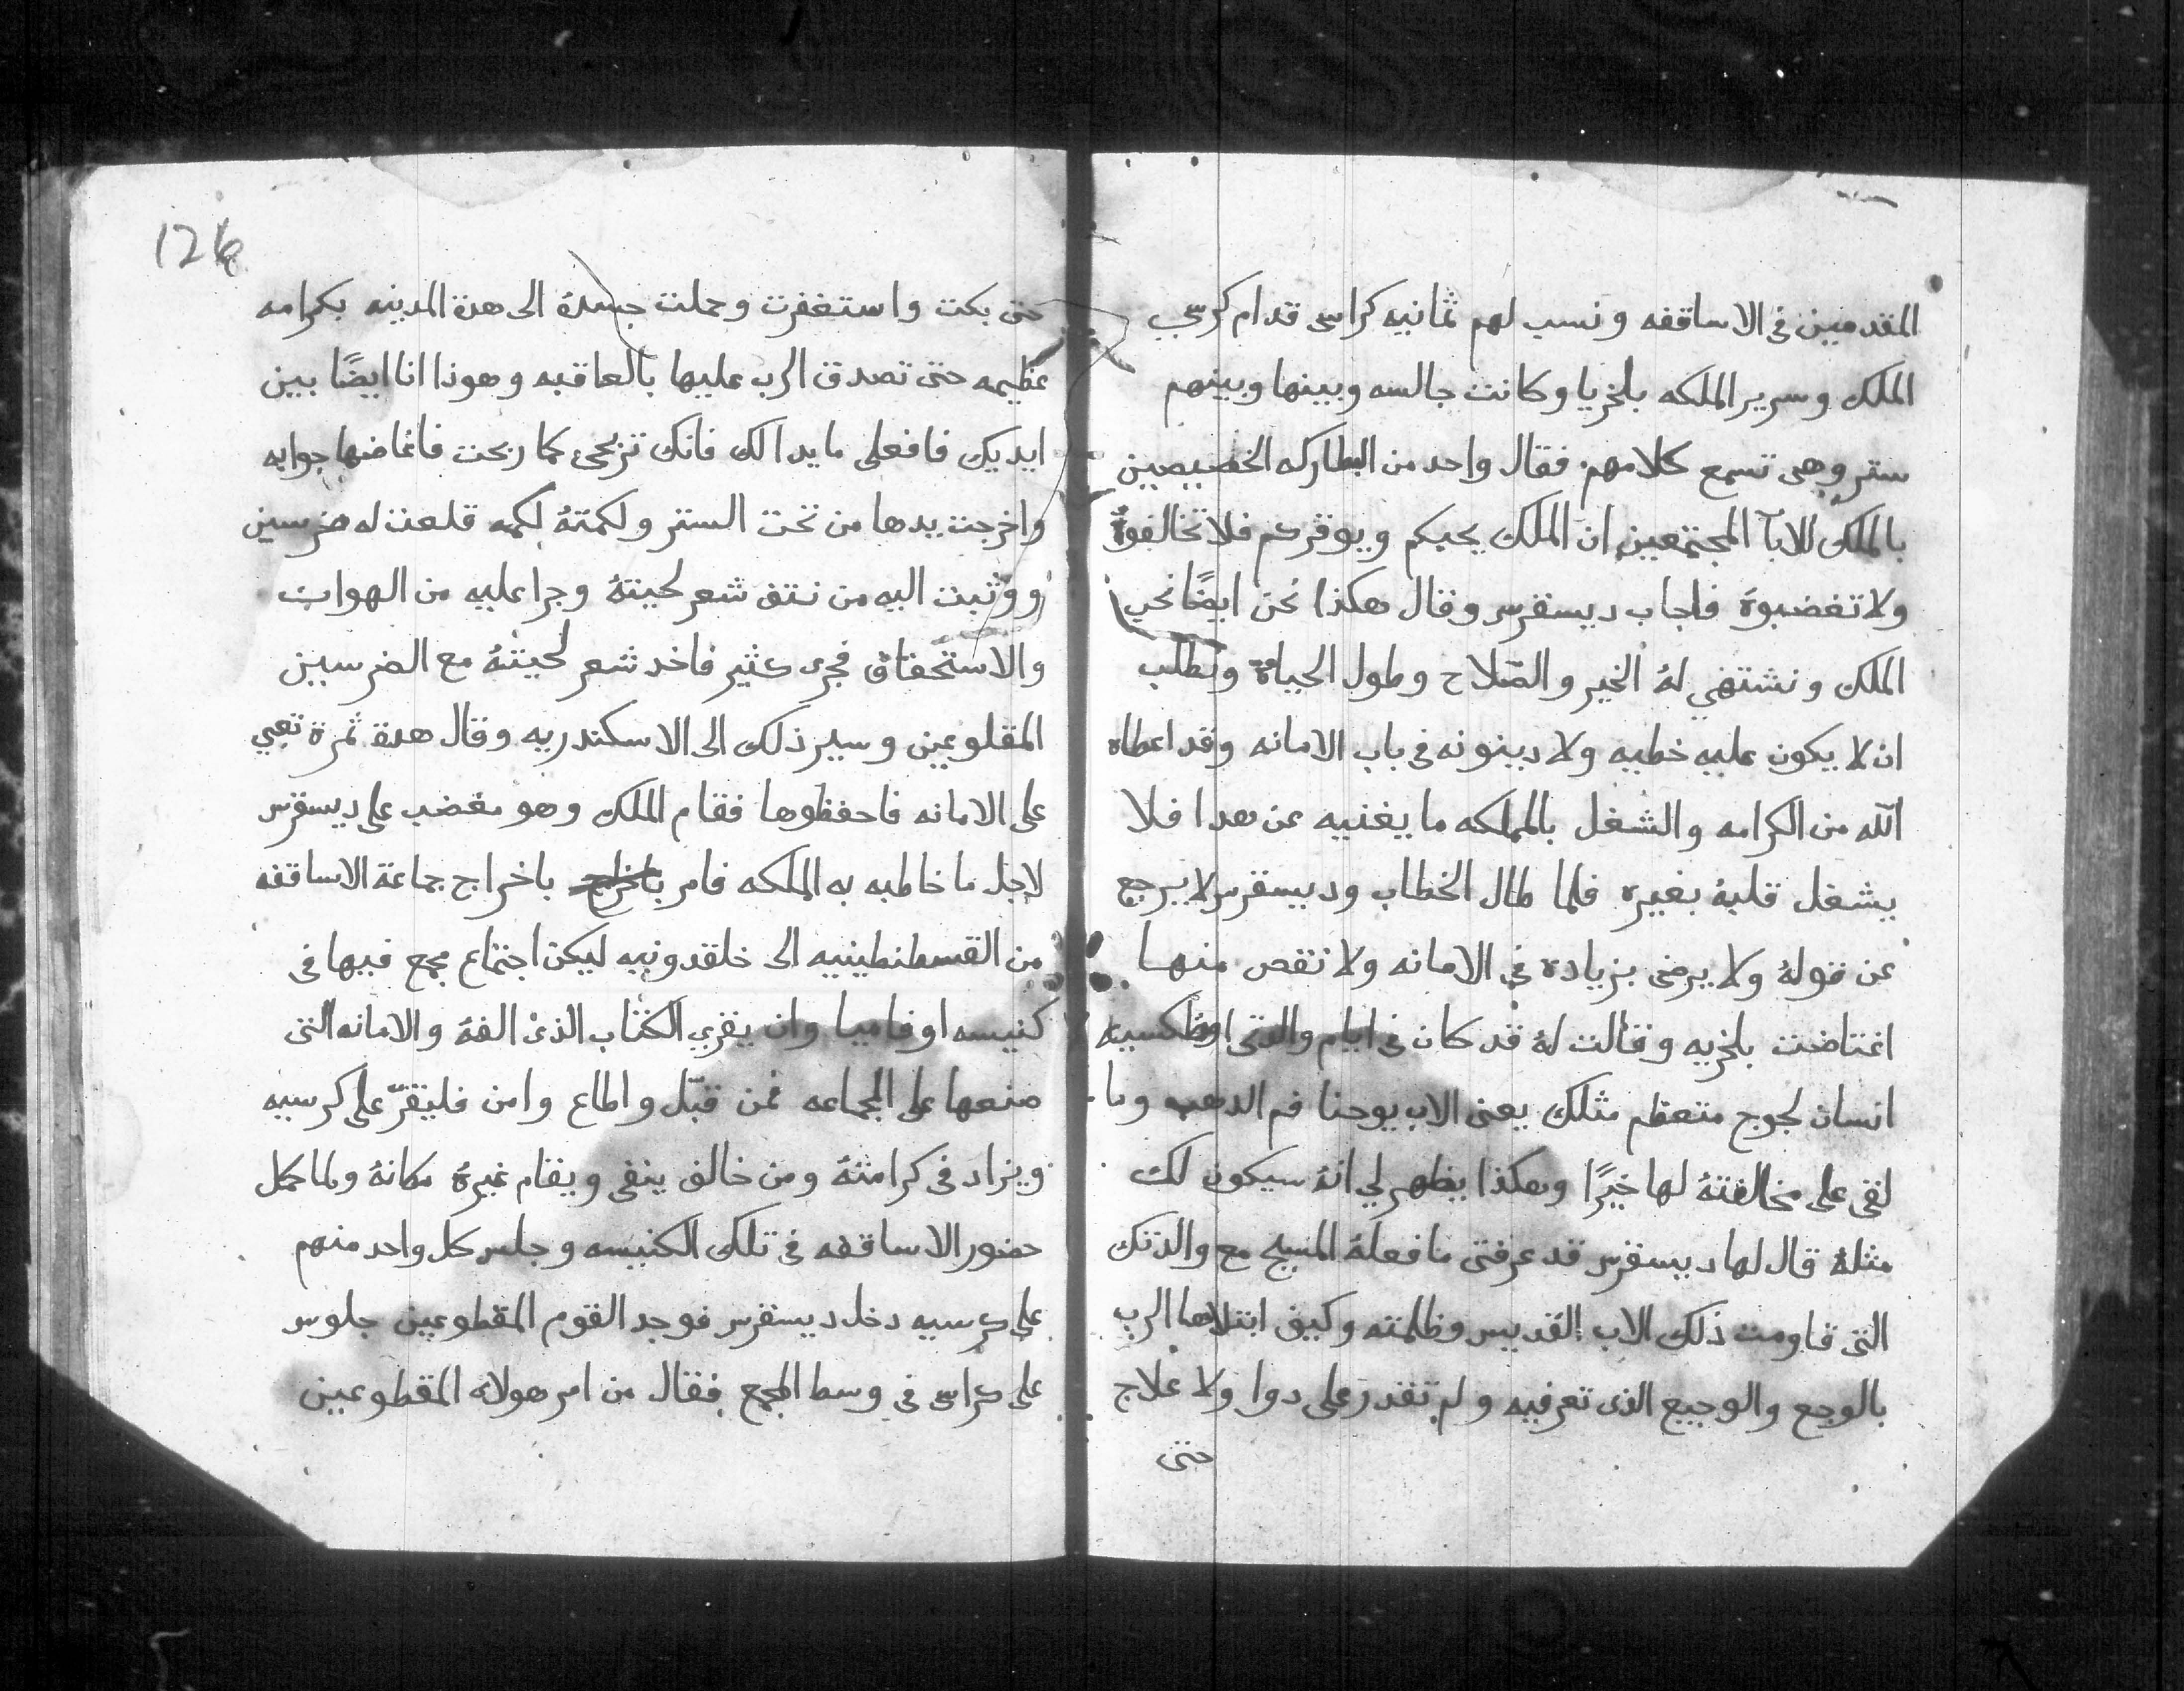 المقدمين فى الاساقفه ونسب لهم ثمانيه كراسى قدام كرسي
الملك وسرير الملكه بلخريا وكانت جالسه وبينها وبينهم
ستر وهى تسمع كلامهم فقال واحد من البطاركه الخصيصين
بالملك للابآ المجتمعين ان الملك يحبكم ويوقركم فلا تخالفوهُ
ولا تغضبوهُ فاجاب ديسقرس وقال هكذا نحن ايضًا نحب
الملك ونشتهي لهُ الخير والصّلاح وطول الحياة ونطلب
ان لا يكون عليه خطيه ولا دينونه فى باب الامانه وقد اعطاه
الله من الكرامه والشغل بالمملكه ما يغنيه عن هدا فلا
يشغل قلبهُ بغيره فلما طال الخطاب وديسقرس لا يرجع
عن قولهُ ولا يرضى بزياده فى الامانه ولا نقص منها
اغتاضت بلخريه وقالت لهُ قد كان فى ايام والدتى اوظكسيه
انسان لجوج متعظم مثلك يعنى الاب يوحنا فم الدهب وما
لقى على مخالفتهُ لها خيرًا وهكذا يظهر لي انهُ سيكون لك
مثلهُ قال لها ديسقرس قد عرفتى ما فعلهُ المسيح مع والدتك
التى قاومت ذلك الاب القديس وظلمته وكيف ابتلاها الرب
بالوجع والوجيع الذى تعرفيه ولم تقدر على دوا ولا علاج
حتى
126
حتى بكت واستغفرت وحملت جسدهُ الى هدة المدينه بكرامه
عظيمه حتى تصدق الرب عليها بالعاقبه وهوذا انا ايضًا بين
ايديك فافعلى ما يدا لك فانك تربحى كما ربحت فاغاضها جوابه
واخرجت يدها من تحت الستر ولكمتهُ لكمه قلعت له ضرسين
ووثبت اليه من نتف شعر لحيتهُ وجرا عليه من الهوان
والاستحقاق فجرى كثير فاخد شعر لحيتهُ مع الضرسين
المقلوعين وسير ذلك الى الاسكندريه وقال هدة ثمرة تعبي
على الامانه فاحفظوها فقام الملك وهو مغضب على ديسقرس
لاجل ما خاطبه به الملكه فامر باخراج باخراج جماعة الاساقفه
من القسطنطينيه الى خلقدونيه ليكن اجتماع مجمع فيها فى
كنيسه اوفاميا وان يقري الكتاب الذى الفهُ والامانه التى
صنعها على الجماعه فمن قبّل واطاع وامن فليقرّ على كرسيه
ويزاد فى كرامتهُ ومن خالف ينفى ويقام غيرهُ مكانهُ ولما كمل
حضور الاساقفه فى تلك الكنيسه وجلس كل واحد منهم
على كرسيه دخل ديسقرس فوجد القوم المقطوعين جلوس
على كراسى فى وسط المجمع فقال من امر هولاء المقطوعين